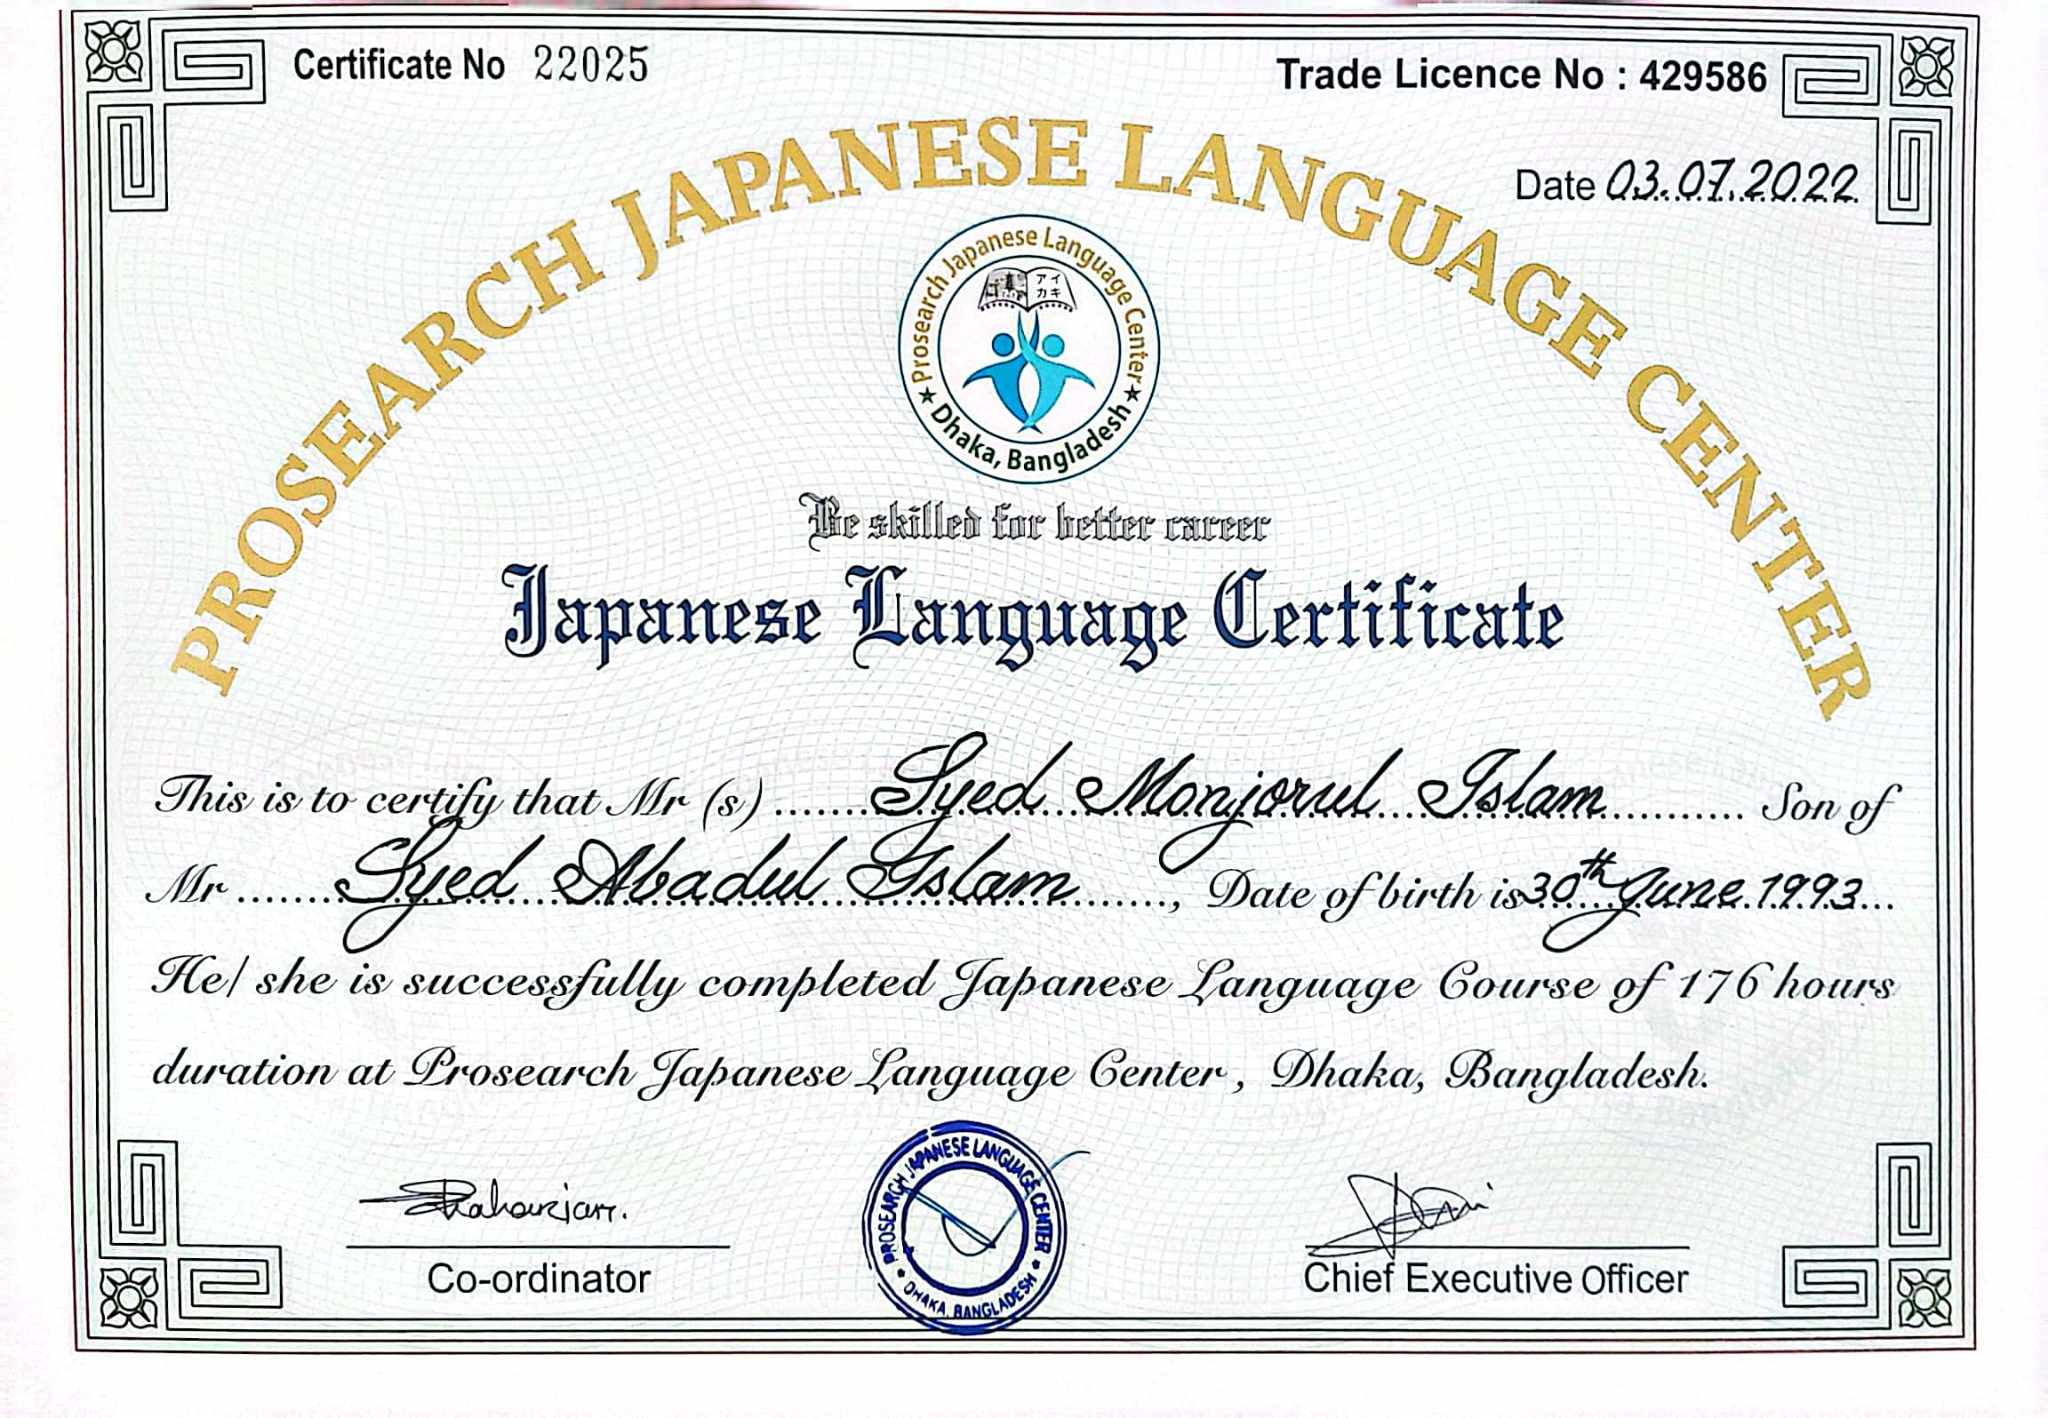 Certificate No 22025
Trade Licence No : 429586
Date 03.07.2022
PROSEARCH JAPANESE LANGUAGE CENTER
Prosearch Japanese Language Center
アイ
カキ
★ Dhaka, Bangladesh ★
Be skilled for better career
Japanese Language Certificate
This is to certify that Mr (s) Syed Monjorul Islam Son of
Mr Syed Abadul Islam, Date of birth is 30th June 1993
He/ she is successfully completed Japanese Language Course of 176 hours
duration at Prosearch Japanese Language Center, Dhaka, Bangladesh.
PROSEARCH JAPANESE LANGUAGE CENTER
• DHAKA, BANGLADESH •
Co-ordinator
Chief Executive Officer